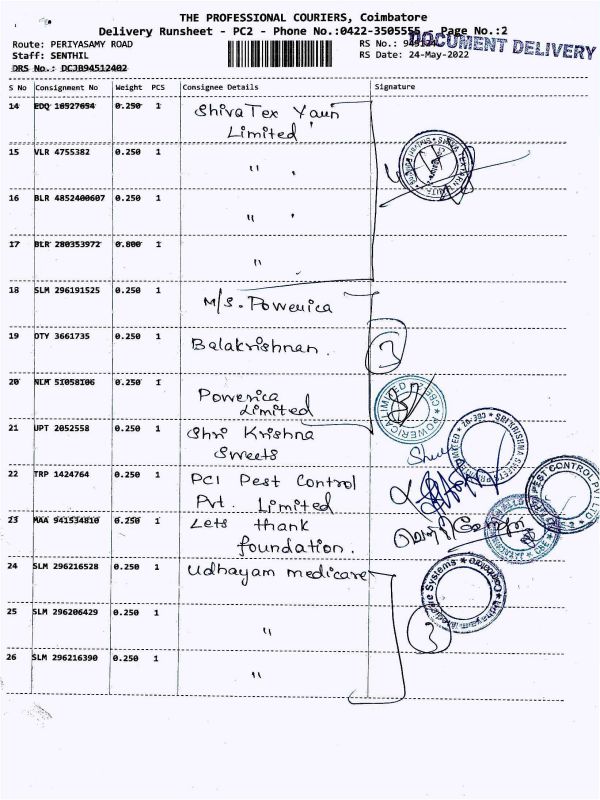 THE PROFESSIONAL COURIERS, Coimbatore
Delivery Runsheet - PC2 - Phone No.:0422-3505555 Page No.:2
Route: PERIYASAMY ROAD
RS No.:
DOCUMENT DELIVERY
Staff: SENTHIL
RS Date: 24-May-2022
DRS No.: DCJB94512402
S No Consignment No Weight PCS Consignee Details Signature
14 EDQ 16527654 0.250 1 ShivaTex Yarn
Limited
15 VLR 4755382 0.250 1 " "
16 BLR 4852400607 0.250 1 " "
17 BLR 280353972 0.800 1 "
18 SLM 296191525 0.250 1 M/S. Powerica
19 OTY 3661735 0.250 1 Balakrishnan.
3
20 NLM 51058106 0.250 1 Powerica
Limited
POWERICA LIMITED
21 UPT 2052558 0.250 1 Shri Krishna
Sweets
SRI KRISHNA SWEETS
22 TRP 1424764 0.250 1 PCI Pest Control
Pvt. Limited
PEST CONTROL PVT
23 MAA 941534810 0.250 1 Lets thank
foundation.
24 SLM 296216528 0.250 1 Udhayam medicare
25 SLM 296206429 0.250 1 "
3
26 SLM 296216390 0.250 1 "